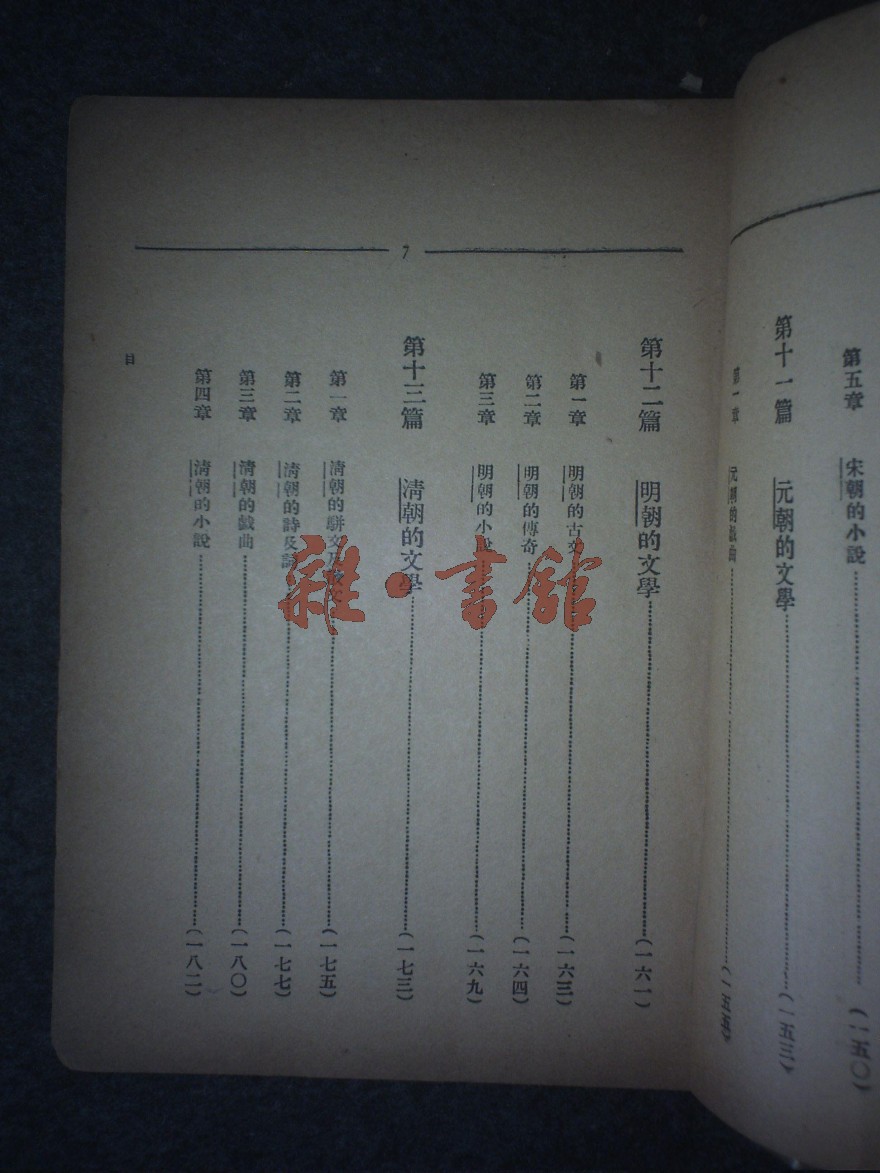 第五章 宋朝的小說……(一五〇)
第十一篇 元朝的文學……(一五三)
第一章 元朝的戲曲……(一五五)
7
第十二篇 明朝的文學……(一六一)
第一章 明朝的古文……(一六三)
第二章 明朝的傳奇……(一六四)
第三章 明朝的小說……(一六九)
第十三篇 清朝的文學……(一七三)
第一章 清朝的駢文及……(一七五)
第二章 清朝的詩及……(一七七)
第三章 清朝的戲曲……(一八〇)
第四章 清朝的小說……(一八二)
目
雜·書館